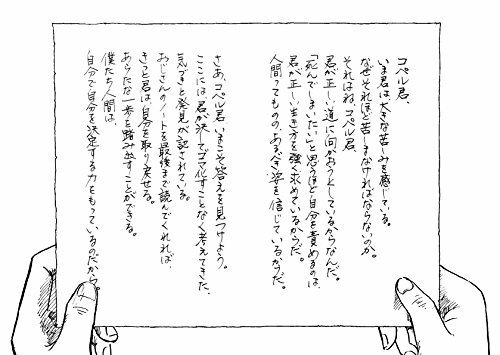 コペル君、
いま君は大きな苦しみを感じている。
なぜそれほど苦しまなければならないのか。
それはね、コペル君、
君が正しい道に向かおうとしているからなんだ。
「死んでしまいたい」と思うほど自分を責めるのは、
君が正しい生き方を強く求めているからだ。
人間ってものの、あるべき姿を信じているからだ。
さあ、コペル君、いまこそ答えを見つけよう。
ここには、君が決してゴマ化すことなく考えてきた、
気づきと発見が記されている。
おじさんのノートを最後まで読んでくれれば、
きっと君は、自分を取り戻せる。
あらたな一歩を踏み出すことができる。
僕たち人間は、
自分で自分を決定する力をもっているのだから。